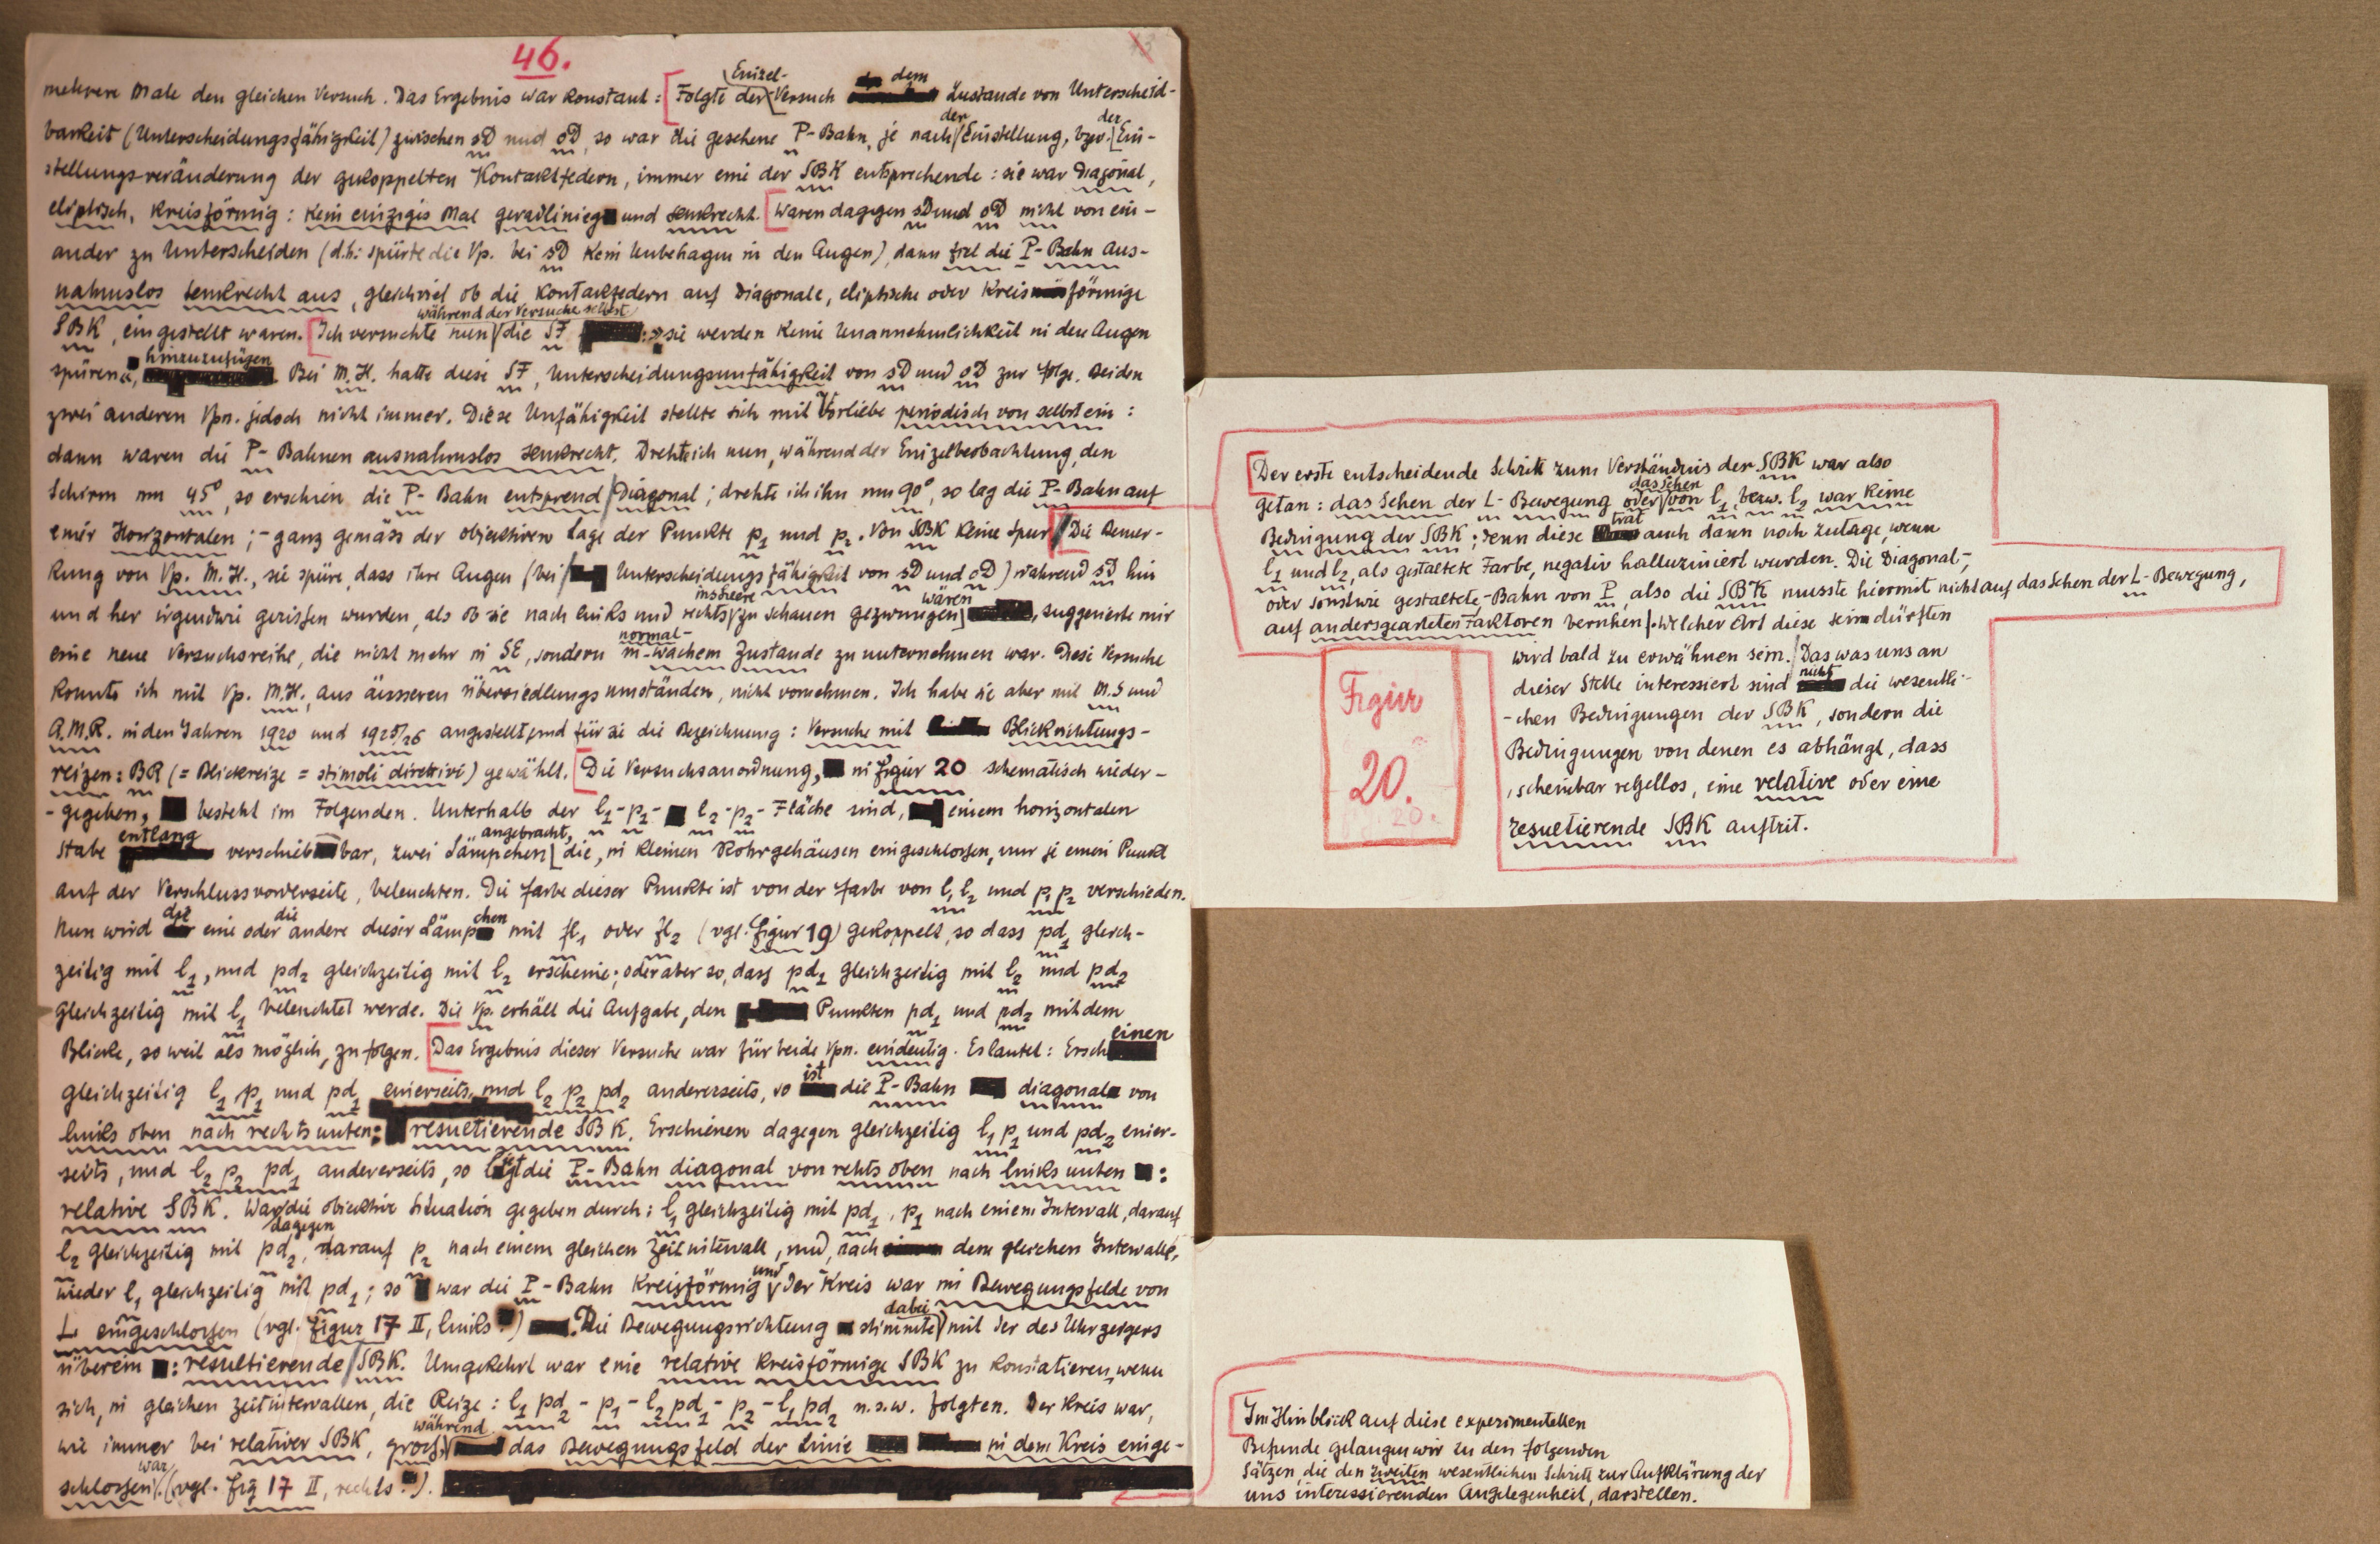 46.
mehrere Male den gleichen Versuch. Das Ergebnis war konstant: Folgte der Einzel-Versuch dem Zustande von Unterscheid-
barkeit (Unterscheidungsfähigkeit) zwischen sD und oD, so war die gesehene P-Bahn, je nach der Einstellung, bzw. der Ein-
stellungsveränderung der gekoppelten Kontaktfedern, immer eine der SBK entsprechende: sie war diagonal,
eliptisch, kreisförmig: kein einziges Mal geradlinieg und senkrecht. Waren dagegen sD und oD nicht von ein-
ander zu Unterscheiden (d.h: spürte die Vp. bei sD kein Unbehagen in den Augen), dann fiel die P-Bahn aus-
nahmslos senkrecht aus, gleichviel ob die Kontaktfedern auf diagonale, eliptische oder kreisförmige
SBK, eingestellt waren. Ich versuchte nun während der Versuche selbst die SF: sie werden keine Unannehmlichkeit in den Augen
spüren, hinzuzufügen. Bei M.H. hatte diese SF, Unterscheidungsunfähigkeit von sD und oD zur folge. Beiden
zwei anderen Vpn. jedoch nicht immer. Diese Unfähigkeit stellte sich mit Vorliebe periodisch von selbst ein:
dann waren die P-Bahnen ausnahmslos senkrecht. Drehte ich nun, während der Einzelbeobachtung, den
Schirm um 45°, so erschien die P-Bahn entsprend diagonal; drehte ich ihn um 90°, so lag die P-Bahn auf
einer Horizontalen; - ganz gemäss der objektiven Lage der Punkte p1 und p2. Von SBK keine Spur. Die Bemer-
kung von Vp. M.H., sie spüre, dass ihre Augen (bei Unterscheidungsfähigkeit von sD und oD) während sD hin
und her irgendwie gerissen wurden, als ob sie nach links und rechts ins Leere zu schauen gezwungen waren, suggerierte mir
eine neue Versuchsreihe, die nicht mehr in SE, sondern in normal-wachem Zustande zu unternehmen war. Diese Versuche
konnte ich mit Vp. M.H., aus äusseren Übersiedlungsumständen, nicht vornehmen. Ich habe sie aber mit M.S und
A.M.R. in den Jahren 1920 und 1925/26 angestellt, und für sie die Bezeichnung: Versuche mit Blickrichtungs-
reizen: BR (= Blickreize = stimoli direttivi) gewählt. Die Versuchsanordnung, in figur 20 schematisch wieder-
-gegeben, besteht im Folgenden. Unterhalb der l1-p1- l2-p2-Fläche sind, einem horizontalen
Stabe entlang verschiebbar, zwei Lämpchen angebracht, die, in kleinen Rohrgehäusen eingeschlossen, nur je einen Punkt
auf der Verschlussvorderseite, beleuchten. Die farbe dieser Punkte ist von der farbe von l1 l2 und p1 p2 verschieden.
Nun wird das eine oder die andere dieser Lämpchen mit fl1 oder fl2 (vgl. figur 19) gekoppelt, so dass pd1 gleich-
zeitig mit l1, und pd2 gleichzeitig mit l2 erscheine; oder aber so, dass pd1 gleichzeitig mit l2 und pd2
gleichzeitig mit l1 beleuchtet werde. Die Vp. erhält die Aufgabe, den Punkten pd1 und pd2 mit dem
Blicke, so weit als möglich, zu folgen. Das Ergebnis dieser Versuche war für beide Vpn. eindeutig. Es lautet: Erscheinen
gleichzeitig l1 p1 und pd1 einerseits und l2 p2 pd2 andererseits, so ist die P-Bahn diagonal von
links oben nach rechts unten: resultierende SBK. Erschienen dagegen gleichzeitig l1 p1 und pd2 einer-
seits, und l2 p2 pd1 andererseits, so liegt die P-Bahn diagonal von rehts oben nach links unten:
relative SBK. War dagegen die objektive Situation gegeben durch: l1 gleichzeitig mit pd1, p1 nach einem Intervall, darauf
l2 gleichzeitig mit pd2, darauf p2 nach einem gleichen Zeitintervall, und, nach dem gleichen Intervalle,
wieder l1 gleichzeitig mit pd1; so war die P-Bahn kreisförmig und der Kreis war im Bewegungsfelde von
L eingeschlossen (vgl. figur 17 II, links). Die Bewegungsrichtung stimmte dabei mit der des Uhrzeigers
überein: resultierende SBK. Umgekehrt war eine relative kreisförmige SBK zu konstatieren, wenn
sich, in gleichen Zeitintervallen, die Reize: l1 pd2 - p1 - l2 pd1 - p2 - l1 pd2 u.s.w. folgten. Der Kreis war,
wie immer bei relativer SBK, gross, während das Bewegungsfeld der Linie in dem Kreis einge-
schlossen war (vgl. fig 17 II, rechts).
Der erste entscheidende Schritt zum Verständnis der SBK war also
getan: das Sehen der L-Bewegung oder das Sehen von l1, bezw. l2 war keine
Bedingung der SBK; denn diese trat auch dann noch zutage, wenn
l1 und l2, als gestaltete Farbe, negativ halluziniert wurden. Die Diagonal-,
oder sonstwie gestaltete-Bahn von P, also die SBK musste hiermit nicht auf das Sehen der L-Bewegung,
auf andersgearteten Faktoren beruhen. Welcher Art diese sein dürften
wird bald zu erwähnen sein. Das was uns an
dieser Stelle interessiert sind nicht die wesentli-
-chen Bedingungen der SBK, sondern die
Bedingungen von denen es abhängt, dass
, scheinbar regellos, eine relative oder eine
resultierende SBK auftrit.
Figur
20.
Im Hinblick auf diese experimentellen
Befunde gelangen wir zu den folgenden
Sätzen, die den zweiten wesentlichen Schritt zur Aufklärung der
uns interessierenden Angelegenheit, darstellen.